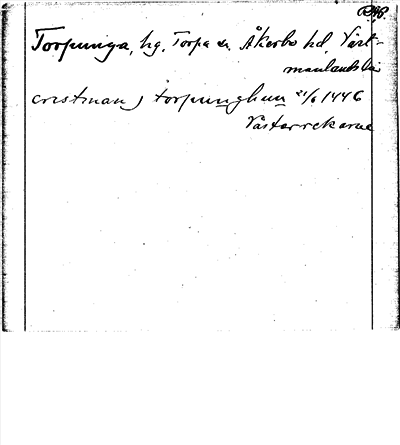 RAP.
Torpunga, hg. Torpa sn Åkerbo hd, Väst-
manlands län
cristman j torpunghum 21/6 1446
Västerrekarne